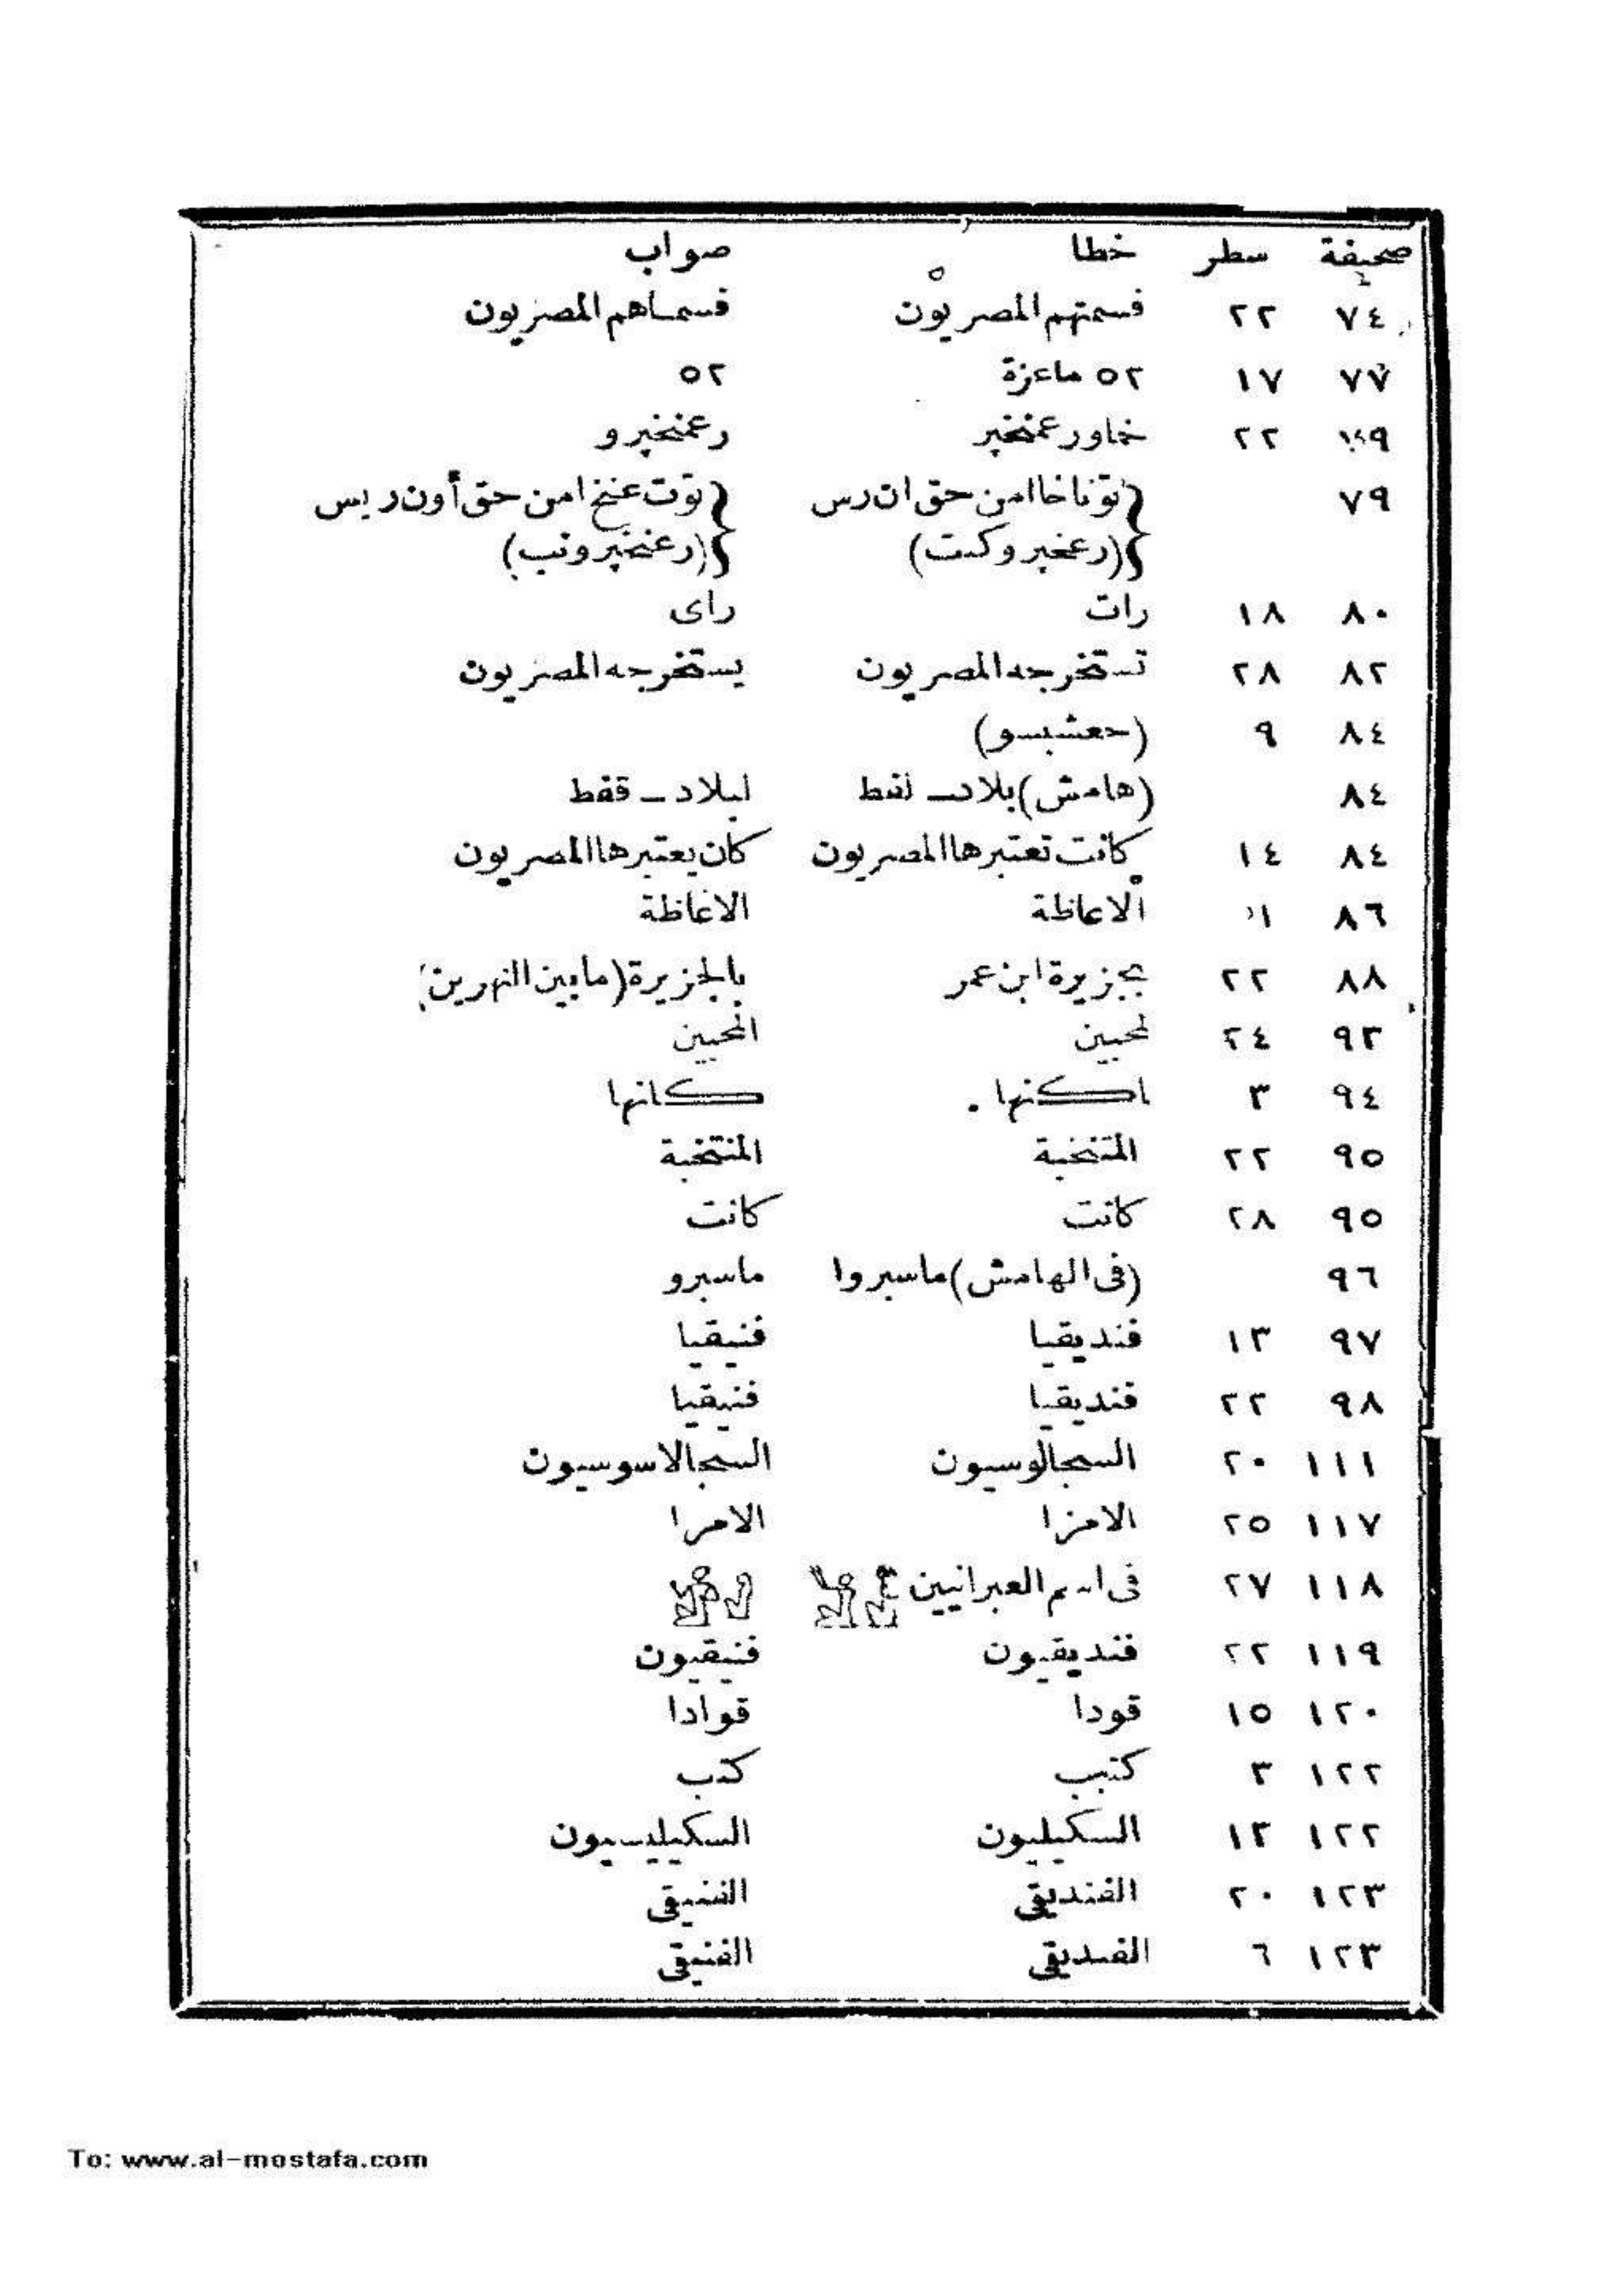 صحيفة سطر خطا صواب
٧٤ ٢٢ قسمتهم المصريون قسماهم المصريون
٧٧ ١٧ ٥٢ ماعزة ٥٢
٢٢ خماورعمنخبر رعمنخبرو
٧٩ توناخاامن حق ان رس توت عنخ امن حق أون ريس
(رعخبروكست) (رعنخبرونب)
٨٠ ١٨ رات راى
٨٢ ٢٨ تستخرجه المصريون يستخرجه المصريون
٨٤ ٩ (حعشبسو)
٨٤ (هامش) بلاد ـ لبلاد ـ قفط
٨٤ ١٤ كانت تعتبرها المصريون كان يعتبرها المصريون
٨٦ الاعاظة الاغاظة
٨٨ ٢٢ بجزيرة ابن عمر بالجزيرة (مابين النهرين)
٩٣ ٢٤ لمحبين المحبين
٩٤ ٣ اكنها كانها
٩٥ ٢٢ المتنخبة المنتخبة
٩٥ ٢٨ كانت كانت
٩٦ (فى الهامش) ماسبروا ماسبرو
٩٧ ١٣ فنديقيا فنيقيا
٩٨ ٢٢ فنديقيا فنيقيا
١١١ ٢٠ السجالوسيون السجالاسوسيون
١١٧ ٢٥ الامزا الامرا
١١٨ ٢٧ فى اسم العبرانيين
١١٩ ٢٢ فنديقيون فنيقيون
١٢٠ ١٥ قودا قوادا
١٢٢ ٣ كتبب كتب
١٢٢ ١٣ السكيليون السكيليسيون
١٢٣ ٢٠ الفنديقى الفنيقى
١٢٣ ٦ الفنيقى
To: www.al-mostafa.com